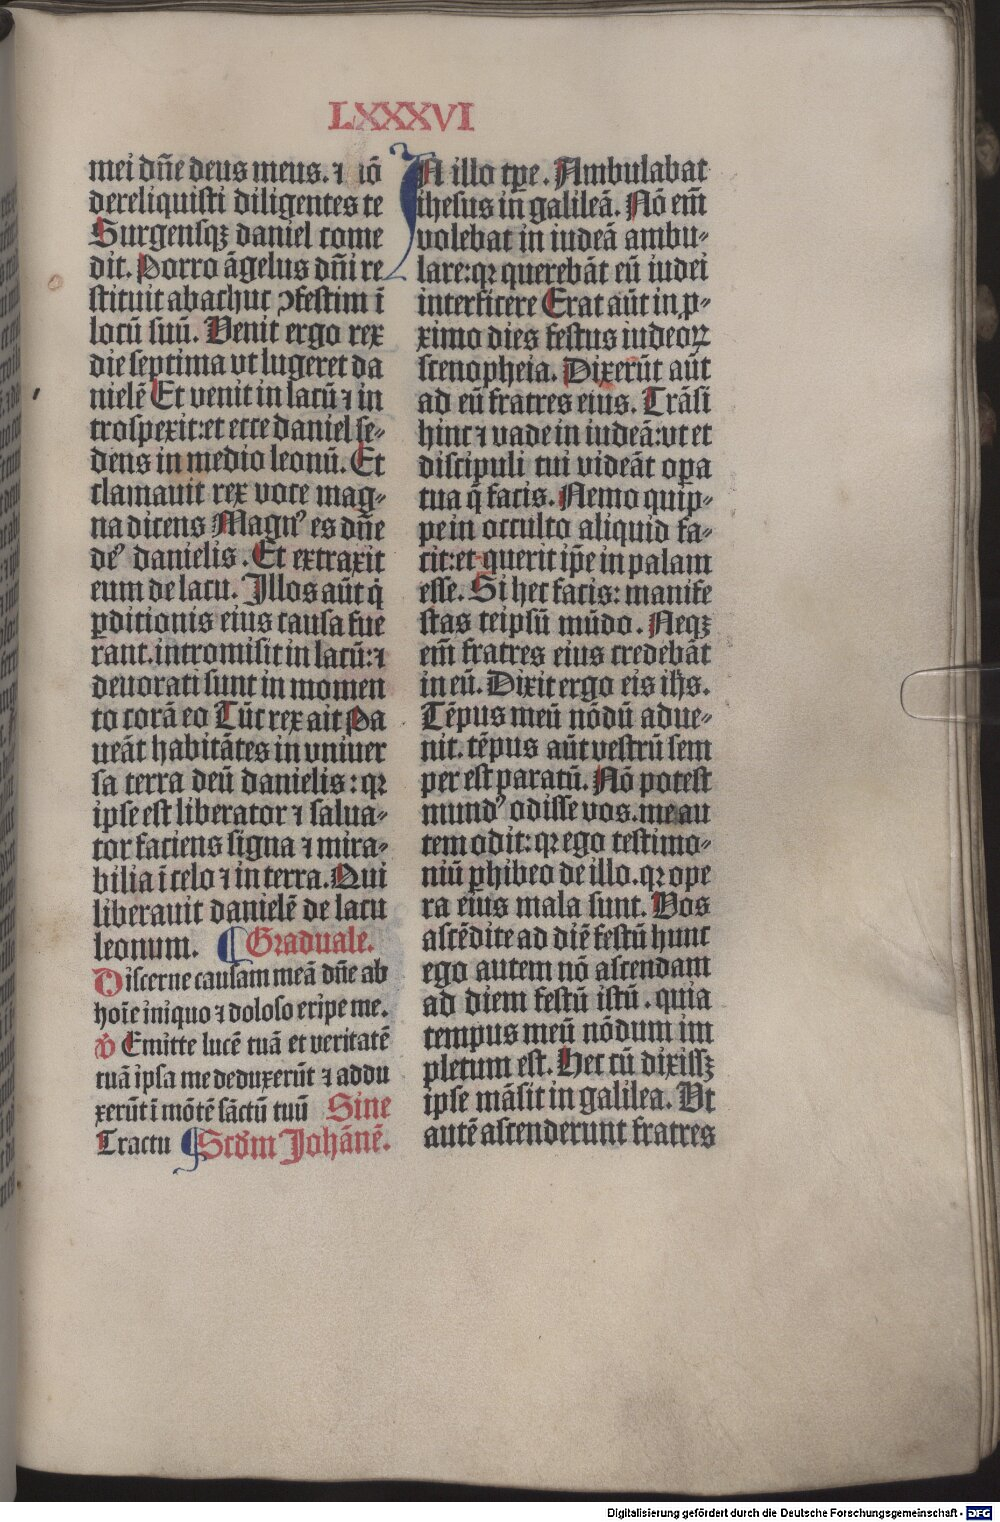 LXXXVI
mei dn̄e deus meus. ⁊ nō
dereliquisti diligentes te
Surgensqꝫ daniel come
dit. Porro āgelus dn̄i re
stituit abachuc ↄfestim ī
locū suū. Venit ergo rex
die septima vt lugeret da
nielē Et venit in lacū ⁊ in
trospexit: et ecce daniel se⸗
dens in medio leonū. Et
clamauit rex voce mag⸗
na dicens Magnꝰ es dn̄e
deꝰ danielis. Et extraxit
eum de lacu. Illos aūt q̇
ꝑditionis eius causa fue
rant. intromisit in lacū: ⁊
deuorati sunt in momen
to corā eo Tūc rex ait Pa
ueāt habitātes in vniuer
sa terra deū danielis: qꝛ
ipse est liberator ⁊ salua⸗
tor faciens signa ⁊ mira⸗
bilia ī celo ⁊ in terra. Qui
liberauit danielē de lacu
leonum. ¶ Graduale.
Discerne causam meā dn̄e ab
hoīe iniquo ⁊ doloso eripe me.
℣ Emitte lucē tuā et veritatē
tuā ipsa me deduxerūt ⁊ addu
xerūt ī mōtē sāctū tuū Sine
Tractu ¶ Scd̄m Johānē.
IN illo tꝑe. Ambulabat
ihesus in galileā. Nō em̄
volebat in iudeā ambu⸗
lare: qꝛ querebāt eū iudei
interficere Erat aūt in ꝓ⸗
ximo dies festus iudeoꝝ
scenopheia. Dixerūt aūt
ad eū fratres eius. Trāsi
hinc ⁊ vade in iudeā: vt et
discipuli tui videāt oꝑa
tua q̄ facis. Nemo quip⸗
pe in occulto aliquid fa⸗
cit: et querit ip̄e in palam
esse. Si hec facis: manife
stas teipsū mūdo. Neqꝫ
em̄ fratres eius credebāt
in eū. Dixit ergo eis ih̄s.
Tēpus meū nōdū adue⸗
nit. tēpus aūt vestrū sem
per est paratū. Nō potest
mundꝰ odisse vos. me au
tem odit: qꝛ ego testimo⸗
niū ꝑhibeo de illo. qꝛ ope
ra eius mala sunt. Vos
ascēdite ad diē festū hunc
ego autem nō ascendam
ad diem festū istū. quia
tempus meū nōdum im
pletum est. Hec cū dixissꝫ
ipse māsit in galilea. Vt
autē ascenderunt fratres
Digitalisierung gefördert durch die Deutsche Forschungsgemeinschaft - DFG